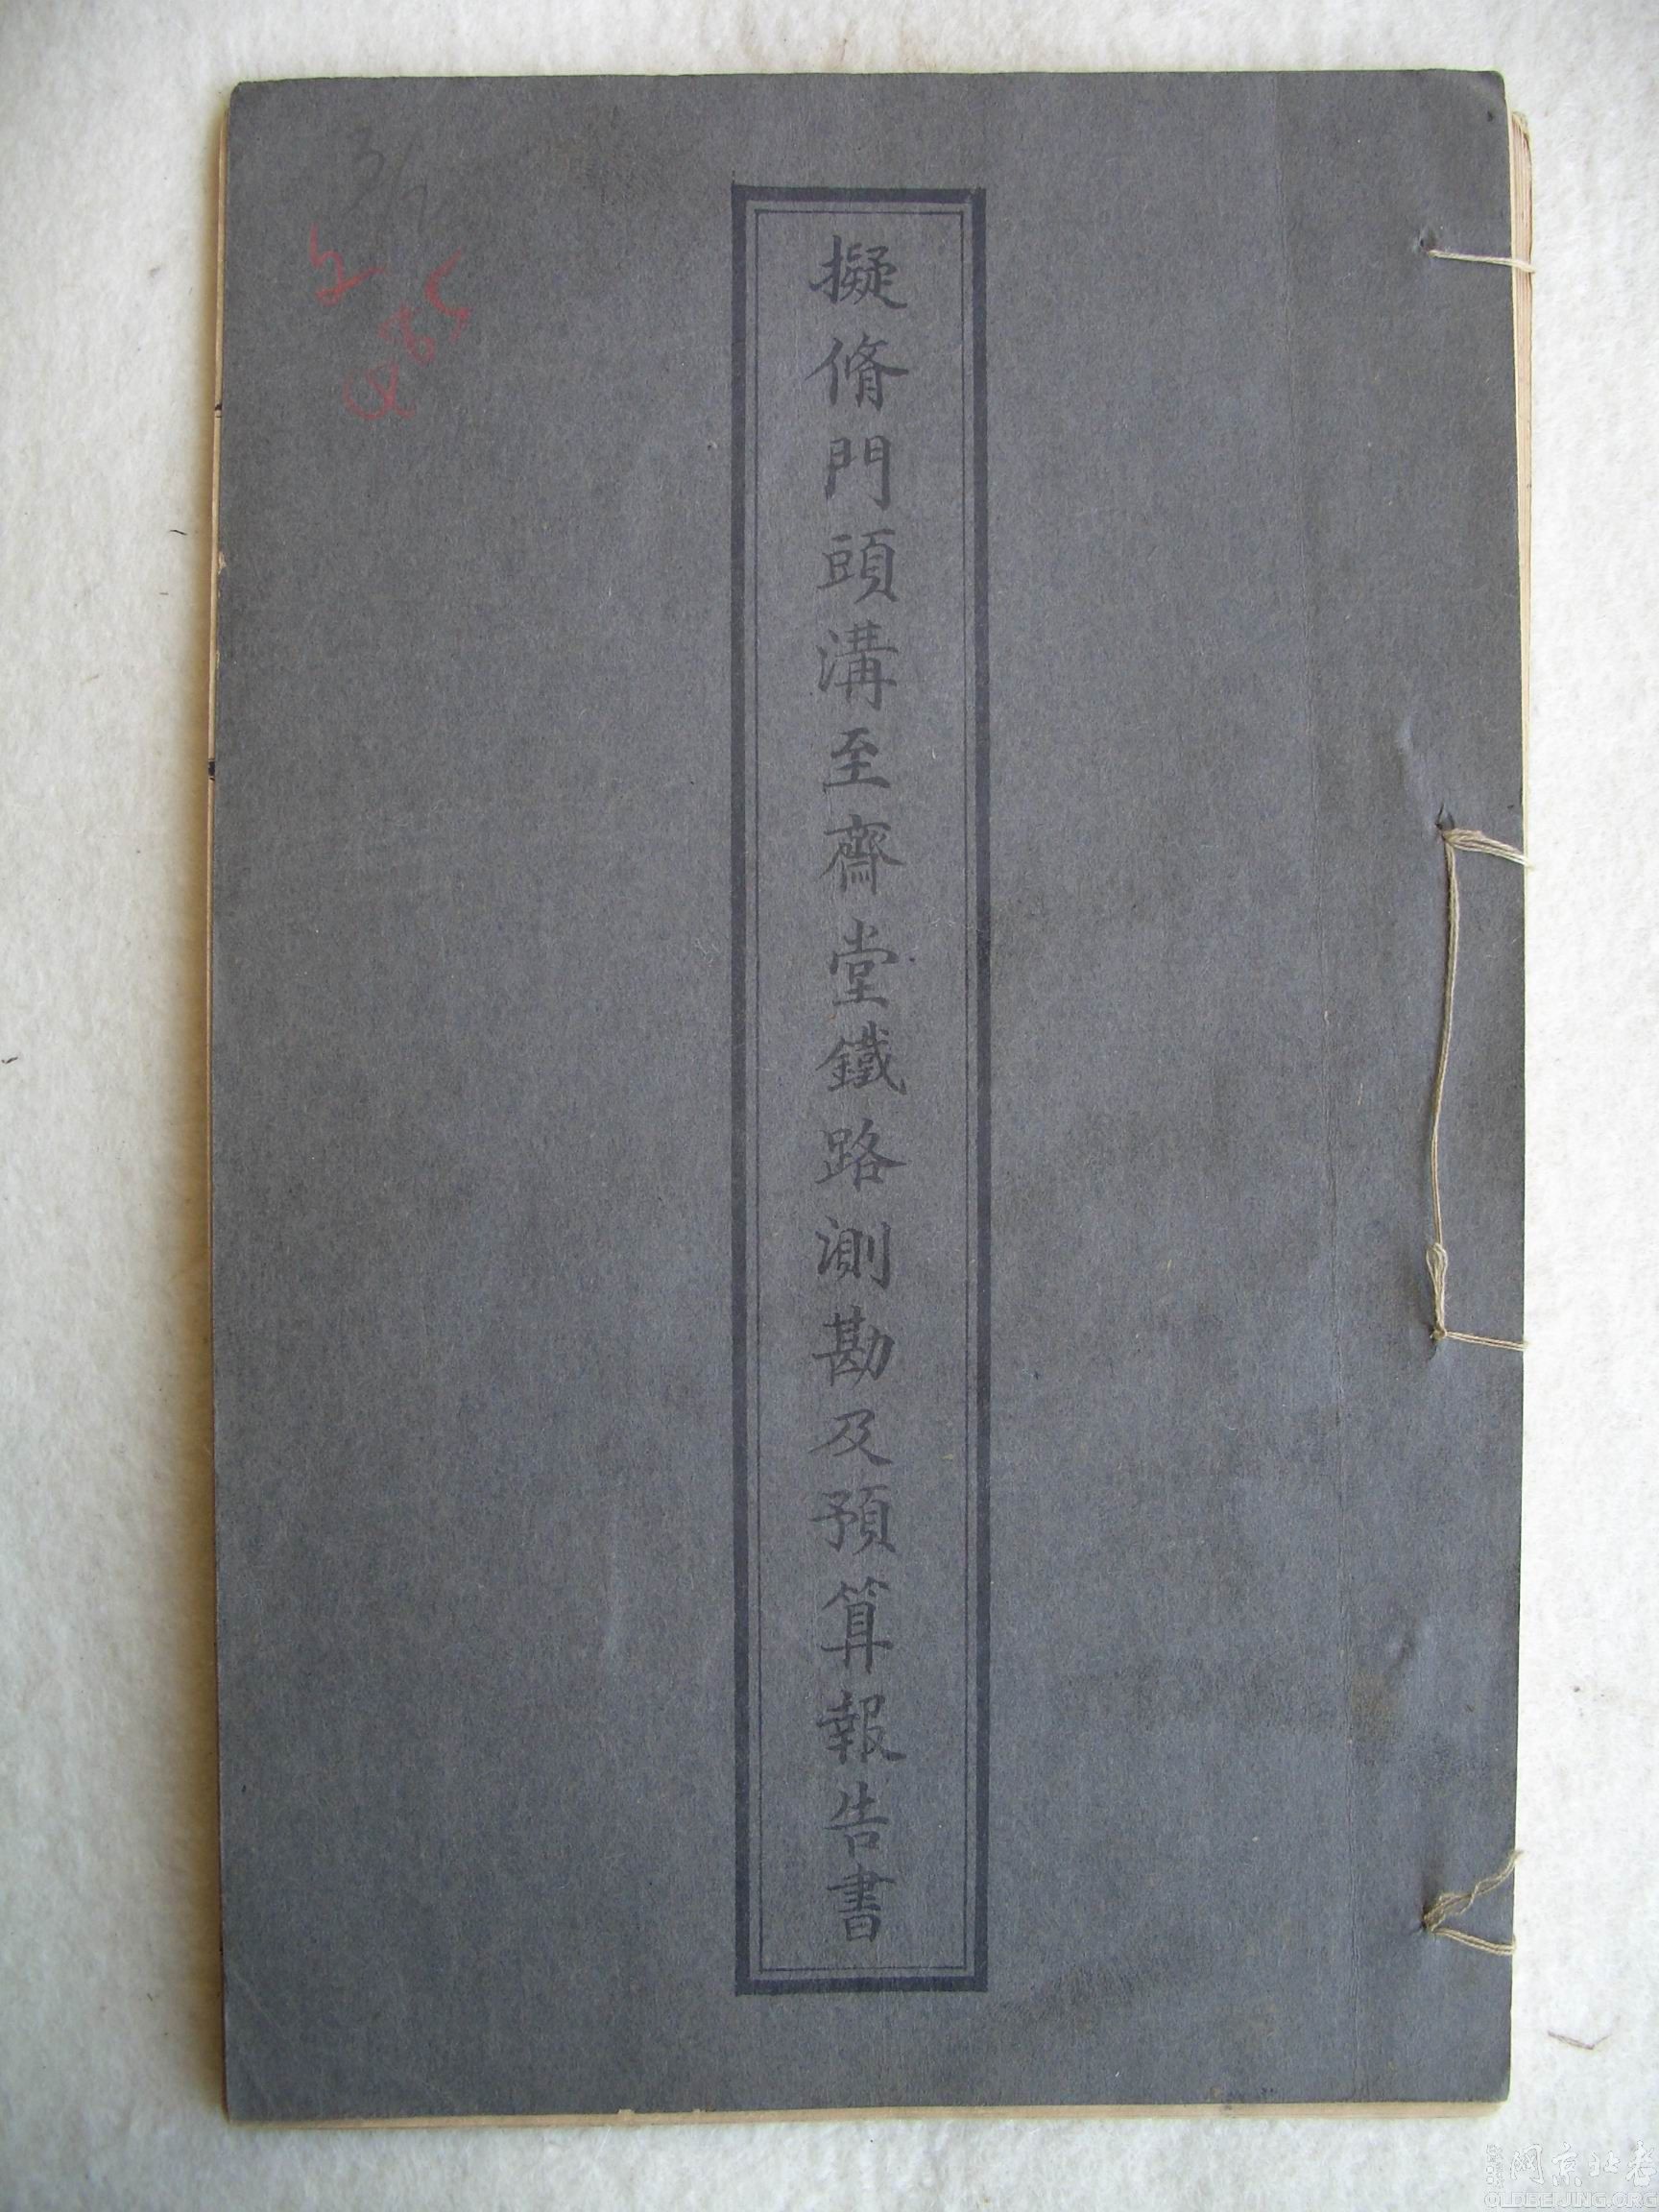 擬脩門頭溝至齋堂鐵路測勘及預算報告書
老北京网
OLDBEIJING.ORG